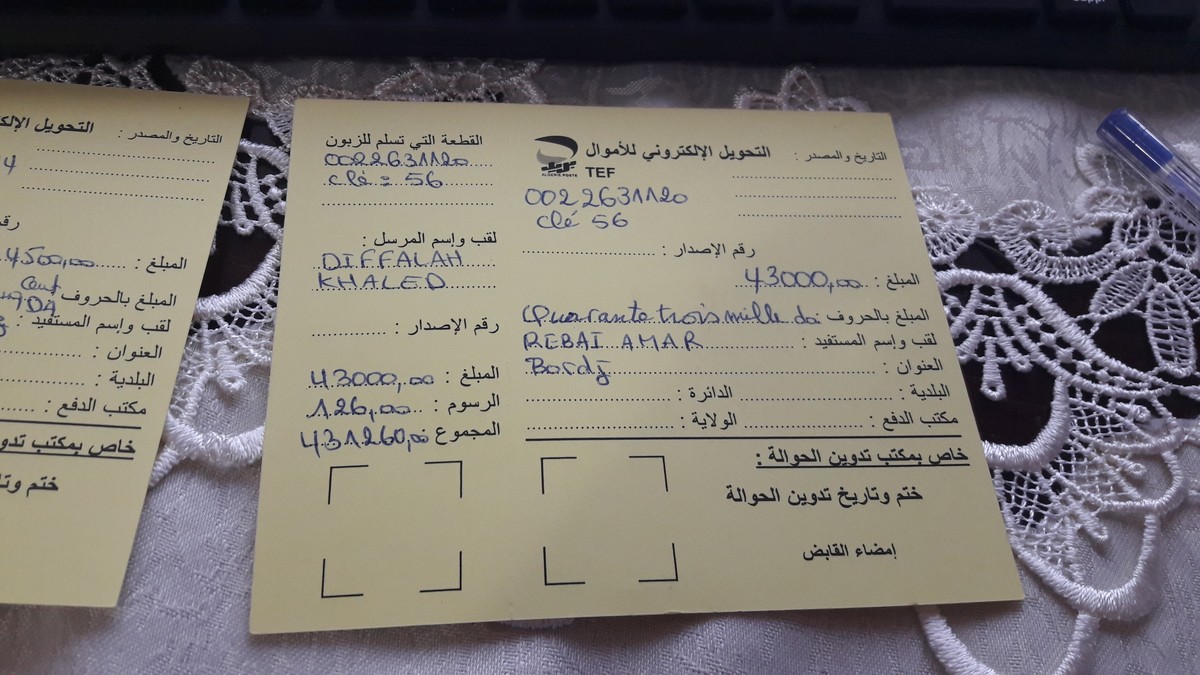 التحويل الإلك
4
رقم
المبلغ : 4500,00
المبلغ بالحروف Cent
DA
لقب وإسم المستفيد :
العنوان :
البلدية :
مكتب الدفع :
خاص بمكتب تدوين
ختم وتا
التاريخ والمصدر :
التحويل الإلكتروني للأموال
TEF
ALGERIE POSTE
التاريخ والمصدر :
0022631120
Clé 56
رقم الإصدار :
المبلغ : 43000,00
المبلغ بالحروف Quarante trois mille da
لقب وإسم المستفيد : REBAI AMAR
العنوان : Bordj
البلدية : الدائرة :
مكتب الدفع : الولاية :
خاص بمكتب تدوين الحوالة :
ختم وتاريخ تدوين الحوالة
إمضاء القابض
القطعة التي تسلم للزبون
0022631120
clé : 56
لقب وإسم المرسل :
DIFFALAH
KHALED
رقم الإصدار :
المبلغ : 43000,00
الرسوم : 126,00
المجموع 431260,00